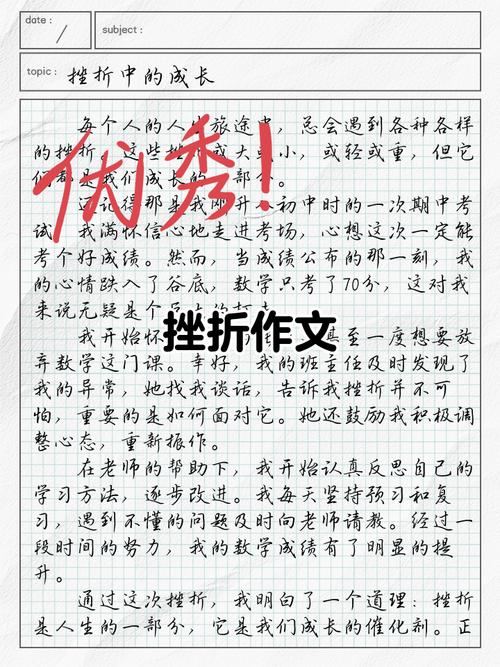 date :
subject :
topic : 挫折中的成长
每个人的人生旅途中，总会遇到各种各样
的挫折。这些挫折或大或小，或轻或重，但它
们都是我们成长的一部分。
优秀!
还记得那是我刚升入初中时的一次期中考
试，我满怀信心地走进考场，心想这次一定能
考个好成绩。然而，当成绩公布的那一刻，我
的心情跌入了谷底，数学只考了70分，这对我
来说无疑是个
挫折作文
我开始怀 真至一度想要放
弃数学这门课。幸好，我的班主任及时发现了
我的异常，她找我谈话，告诉我挫折并不可
怕，重要的是如何面对它。她还鼓励我积极调
整心态，重新振作。
在老师的帮助下，我开始认真反思自己的
学习方法，逐步改进。我每天坚持预习和复
习，遇到不懂的问题及时向老师请教。经过一
段时间的努力，我的数学成绩有了明显的提
升。
通过这次挫折，我明白了一个道理：挫折
是人生的一部分，它是我们成长的催化剂。正